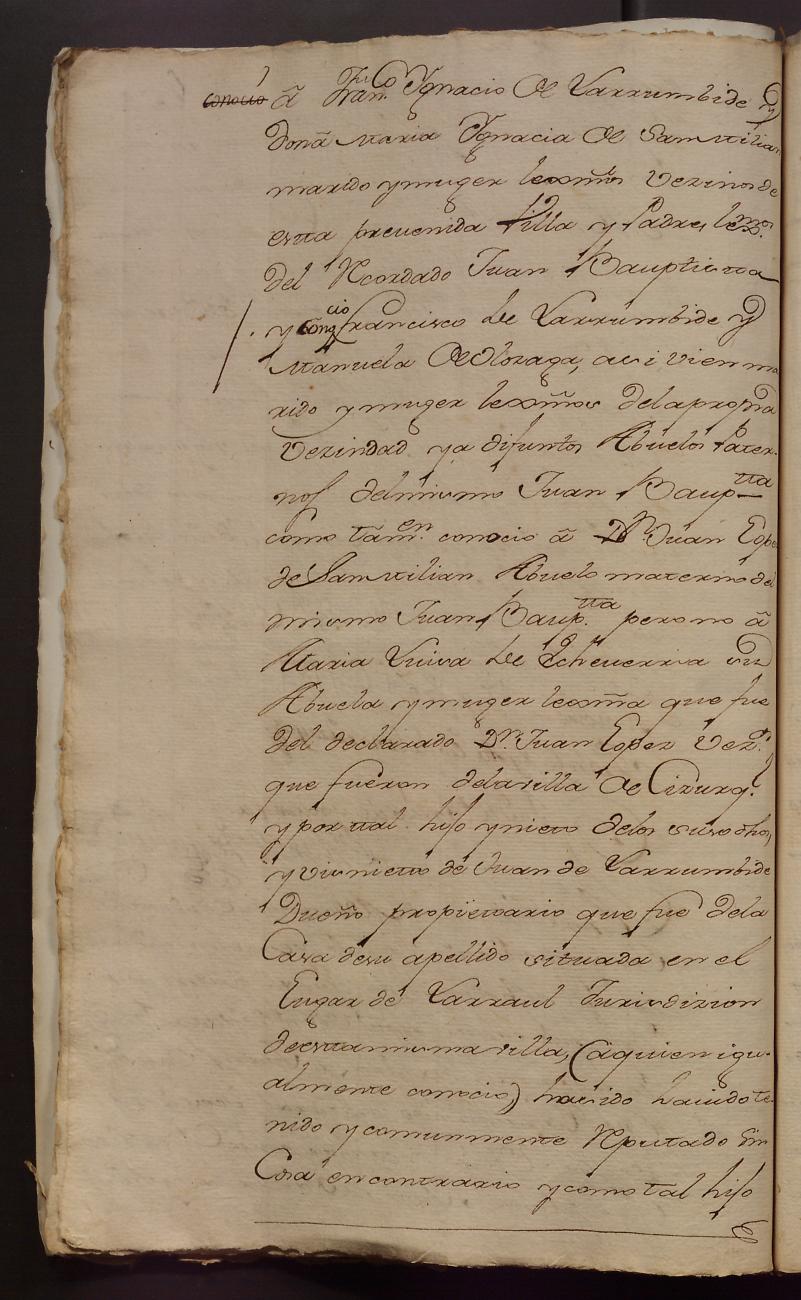 conocio â Fran.co Ygnacio de Larrumbide y
doña Maria Ygnacia de Sanmilian
marido y muger lexmos Vezinos de
esta prevenida Villa y Padres lexmos.
del Recordado Juan Bauptista
y conocio Francisco de Larrumbide y
Manuela de Olozaga, asi vien ma
rido y muger lexmos dela propria
Vezindad ya difuntos Abuelos Pater-
nos del mismo Juan Baup.tta
como tamv.en conocio â Dn. Juan Lope
de Sanmilian Abuelo materno del
mismo Juan Baup.tta pero no â
Maria Luisa de Echeverria su
Abuela y muger lexma que fue
del declarado Dn. Juan Lopez Vez.s
que fueron dela villa de Cizurq.l
y por tal hijo y nieto delos suso dhos,
y visnieto de Juan de Larrumbide
Dueño propietario que fue dela
Casa desu apellido situada en el
Lugar de Larraul Jurisdizion
deesta misma villa, (â quien igu-
almente conocio) ha sido hauido te-
nido y comunmente Reputado sin
Cosa en contrario y como tal hijo